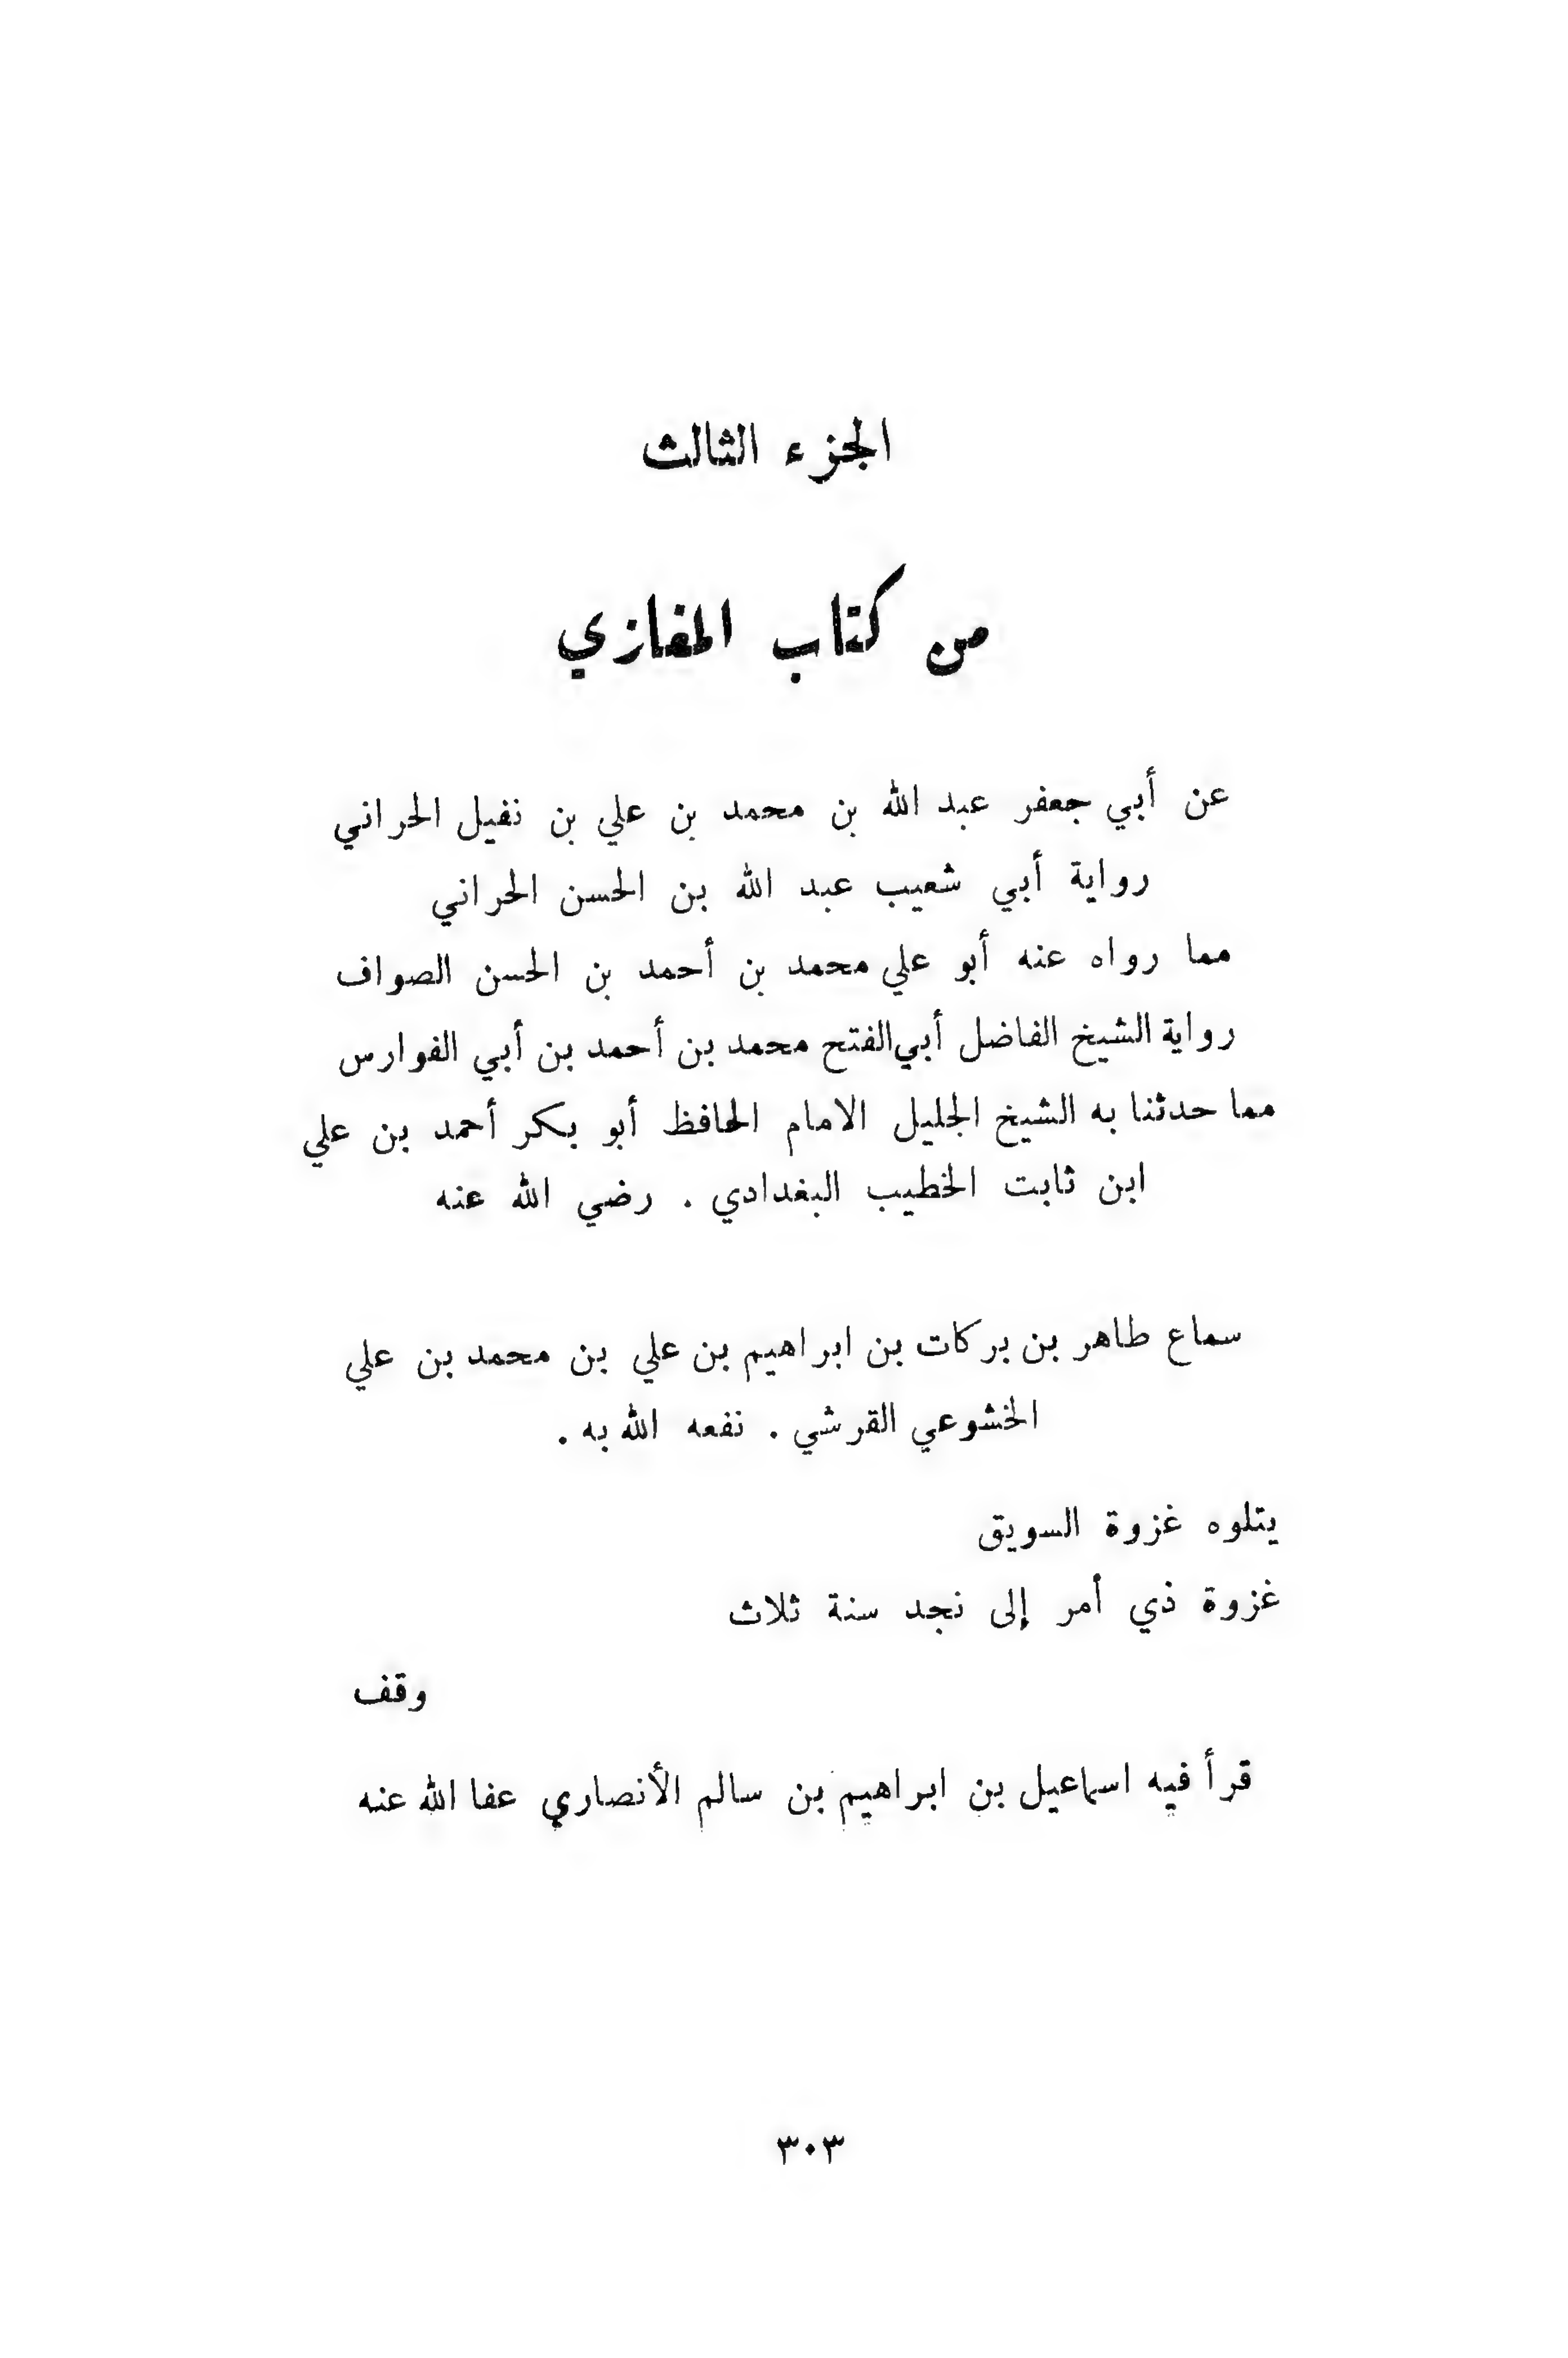 الجزء الثالث
من كتاب المغازي
عن أبي جعفر عبد الله بن محمد بن علي بن نفيل الحراني
رواية أبي شعيب عبد الله بن الحسن الحراني
مما رواه عنه أبو علي محمد بن أحمد بن الحسن الصواف
رواية الشيخ الفاضل أبي الفتح محمد بن أحمد بن أبي الفوارس
مما حدثنا به الشيخ الجليل الامام الحافظ أبو بكر أحمد بن علي
ابن ثابت الخطيب البغدادي . رضي الله عنه
سماع طاهر بن بركات بن ابراهيم بن علي بن محمد بن علي
الخشوعي القرشي . نفعه الله به .
يتلوه غزوة السويق
غزوة ذي أمر إلى نجد سنة ثلاث
وقف
قرأ فيه اسماعيل بن ابراهيم بن سالم الأنصاري عفا الله عنه
٣٠٣